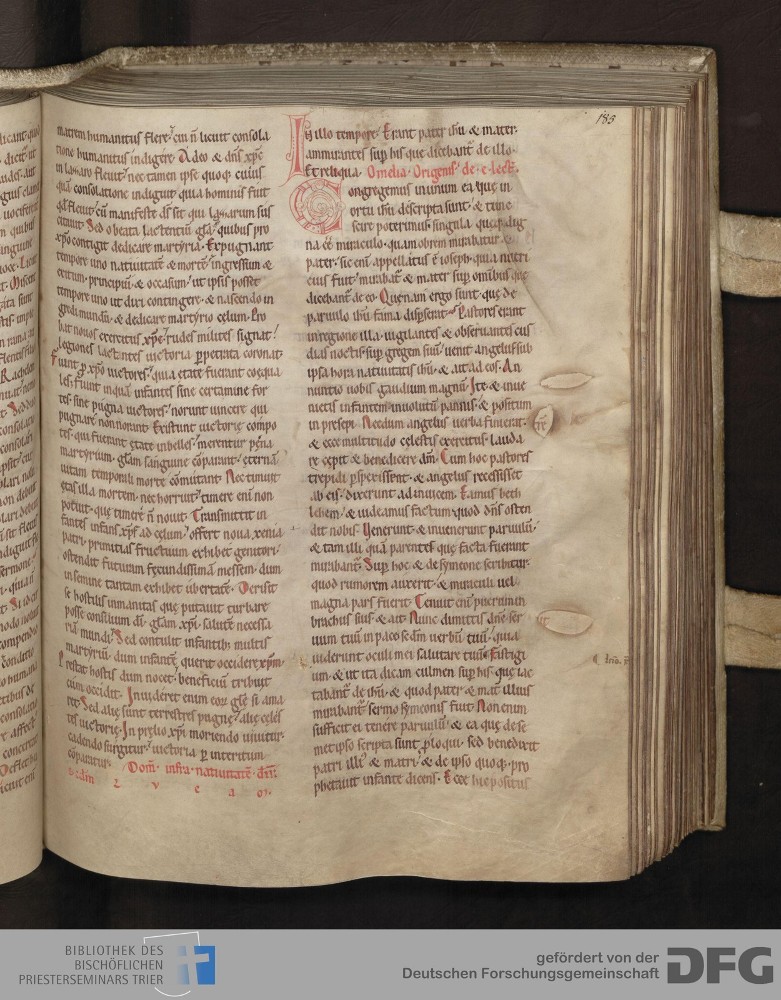 matrem humanitus flere? cui ñ licuit consola
tione humanitus indigere. Adeo & dñs xp̄c
in lazaro fleuit. nec tamen ipse quoq; cuius
quā consolatione indiguit. quia hominis fuit
qd̄ fleuit. cū manifeste d̄s sit qui lazarum sus
citauit. Sed o beata lactentiū gl̄a. quibus pro
xp̄o contigit dedicare martyria. Expugnant
tempore uno natiuitatē & mortē. ingressum &
exitum. principiū & occasum. ut ipsis posset
tempore uno ut diui contingere. & nascendo in
gredi mundū. & dedicare martyrio celum. Pro
bat nouos exercitus xp̄c. rudes milites signat.
legiones lactentes uictoria ꝑpetrata coronat.
Fiunt ꝓ xp̄o uictores. quia etate fuerant coequa
les. fiunt inquā infantes sine certamine for
tes. sine pugna uictores. norunt uincere qui
pugnare non norant. Existunt uictorie compo
tes. qui fuerant etate inbelles. merentur pena
martyrium. gl̄am sanguine cōparant. eternā
uitam temporali morte cōmutant. Nec timuit
etas illa mortem. nec horruit. timere eni non
potuit. que timere ñ nouit. Transmittit in
fantes infans xp̄s ad celum. offert noua xenia
patri. primitias fructuum exhibet genitori.
ostendit futuram fecundissimā messem. dum
in semine tantam exhibet ubertatē. Derisit
se hostilis inmanitas que putauit turbare
posse consilium dī. gl̄am xp̄i. salutē necessa
riā mundi. Sed contulit infantib; multis
martyriū. dum infantē querit occidere xp̄m.
Prestat hostis dum nocet. beneficiū tribuit
cum occidit. Inuideret enim eor; gl̄e si ama
ret. Sed alie sunt terrestres pugne. alie celes
tis uictorie. In prelio xp̄i moriendo uiuitur.
cadendo surgitur. uictoria ꝑ interitum
cōparatur. Dom̄. infra natiuitatē. dñi.
Lucam
In illo tempore. Erant pater ihū & mater.
ammirantes sup his que dicebant de illo.
Et reliqua. Omelia. Origenis. de. e. lect.
Congregemus in unum ea que in
ortu ihū descripta sunt. & tunc
scire poterimus singula queq; dig
na eē miraculo. quam obrem mirabatur &
pater. sic eni appellatus ē ioseph. quia nutri
cius fuit. mirabat & mater sup omnibus que
dicebant de eo. Quenam ergo sunt. que de
paruulo ihū fama disperserat. Pastores erant
in regione illa. uigilantes & obseruantes cus
dias noctis sup gregem suū. uenit angelus sub
ipsa hora natiuitatis ihū. & ait ad eos. An
nuntio uobis gaudium magnū. Ite & inue
nietis infantem inuolutū pannis. & positum
in presepi. Necdum angelus uerba finierat.
& ecce multitudo celestis exercitus. lauda
re cepit & benedicere dm̄. Cum hoc pastores
trepidi ꝑspexissent. & angelus recessisset
ab eis. dixerunt adinuicem. Eamus beth
lehem. & uideamus factum quod dn̄s osten
dit nobis. Uenerunt & inuenerunt paruulū.
& tam illi quā parentes que facta fuerant
mirabant. Sup hoc & de symeone scribitur.
quod rumorem auxerit. & miraculi uel
magna pars fuerit. Tenuit eni puerum in
brachiis suis & ait. Nunc dimittis dn̄e ser
uum tuū in pace sc̄dm uerbū tuū. quia
uiderunt oculi mei salutare tuū. Fastigi
um. & ut ita dicam culmen sup his. que iac
tabant de ihū. & quod pater & mat illius
mirabant. sermo symeonis fuit. Non enim
sufficit ei tenere paruulū. & ea que de se
met ipso scripta sunt ploqui. sed benedixit
patri illi & matri. & de ipso quoq; pro
phetauit infante dicens. Ecce hic positus
183
BIBLIOTHEK DES
BISCHÖFLICHEN
PRIESTERSEMINARS TRIER
gefördert von der
Deutschen Forschungsgemeinschaft
DFG